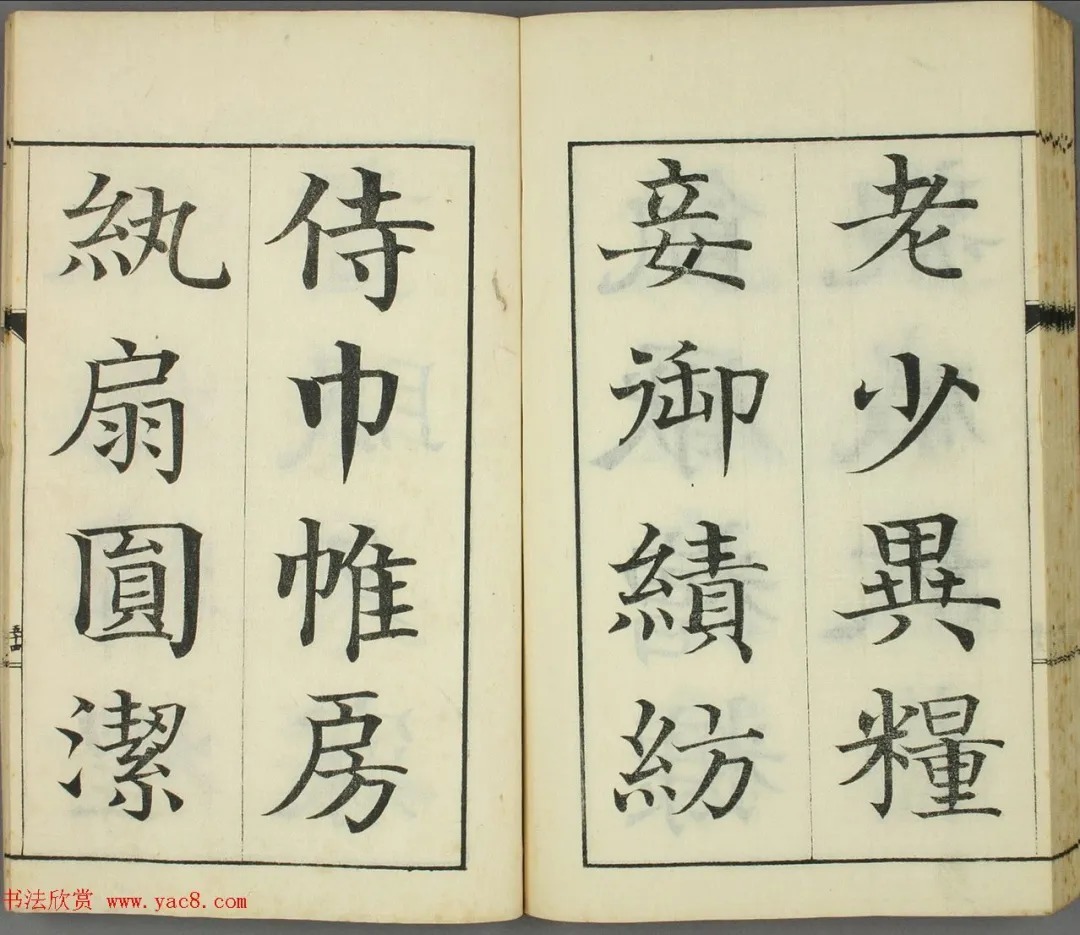 老少異糧
妾御績紡
侍巾帷房
紈扇圓潔
五十四
书法欣赏 www.yac8.com